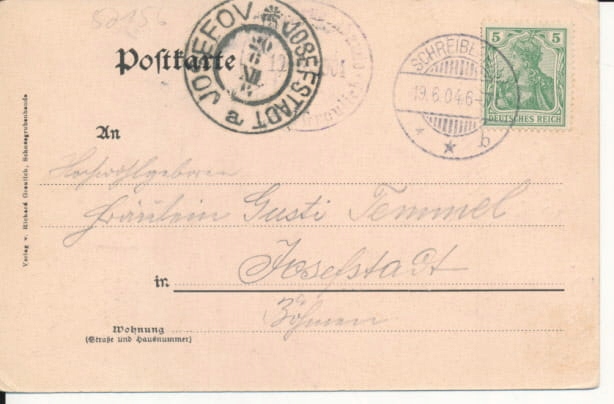 52156
Postkarte
JOSEFOV * JOSEFSTADT
20
6
XII
a
SCHREIBER
19.6.04.6-
* * b
5 5
DEUTSCHES REICH
An
Hochwohlgeboren
Fräulein Gusti Temmel
in Josefstadt
Böhmen
Wohnung
(Straße und Hausnummer)
Verlag v. Richard Greulich, Schneegrubenbaude